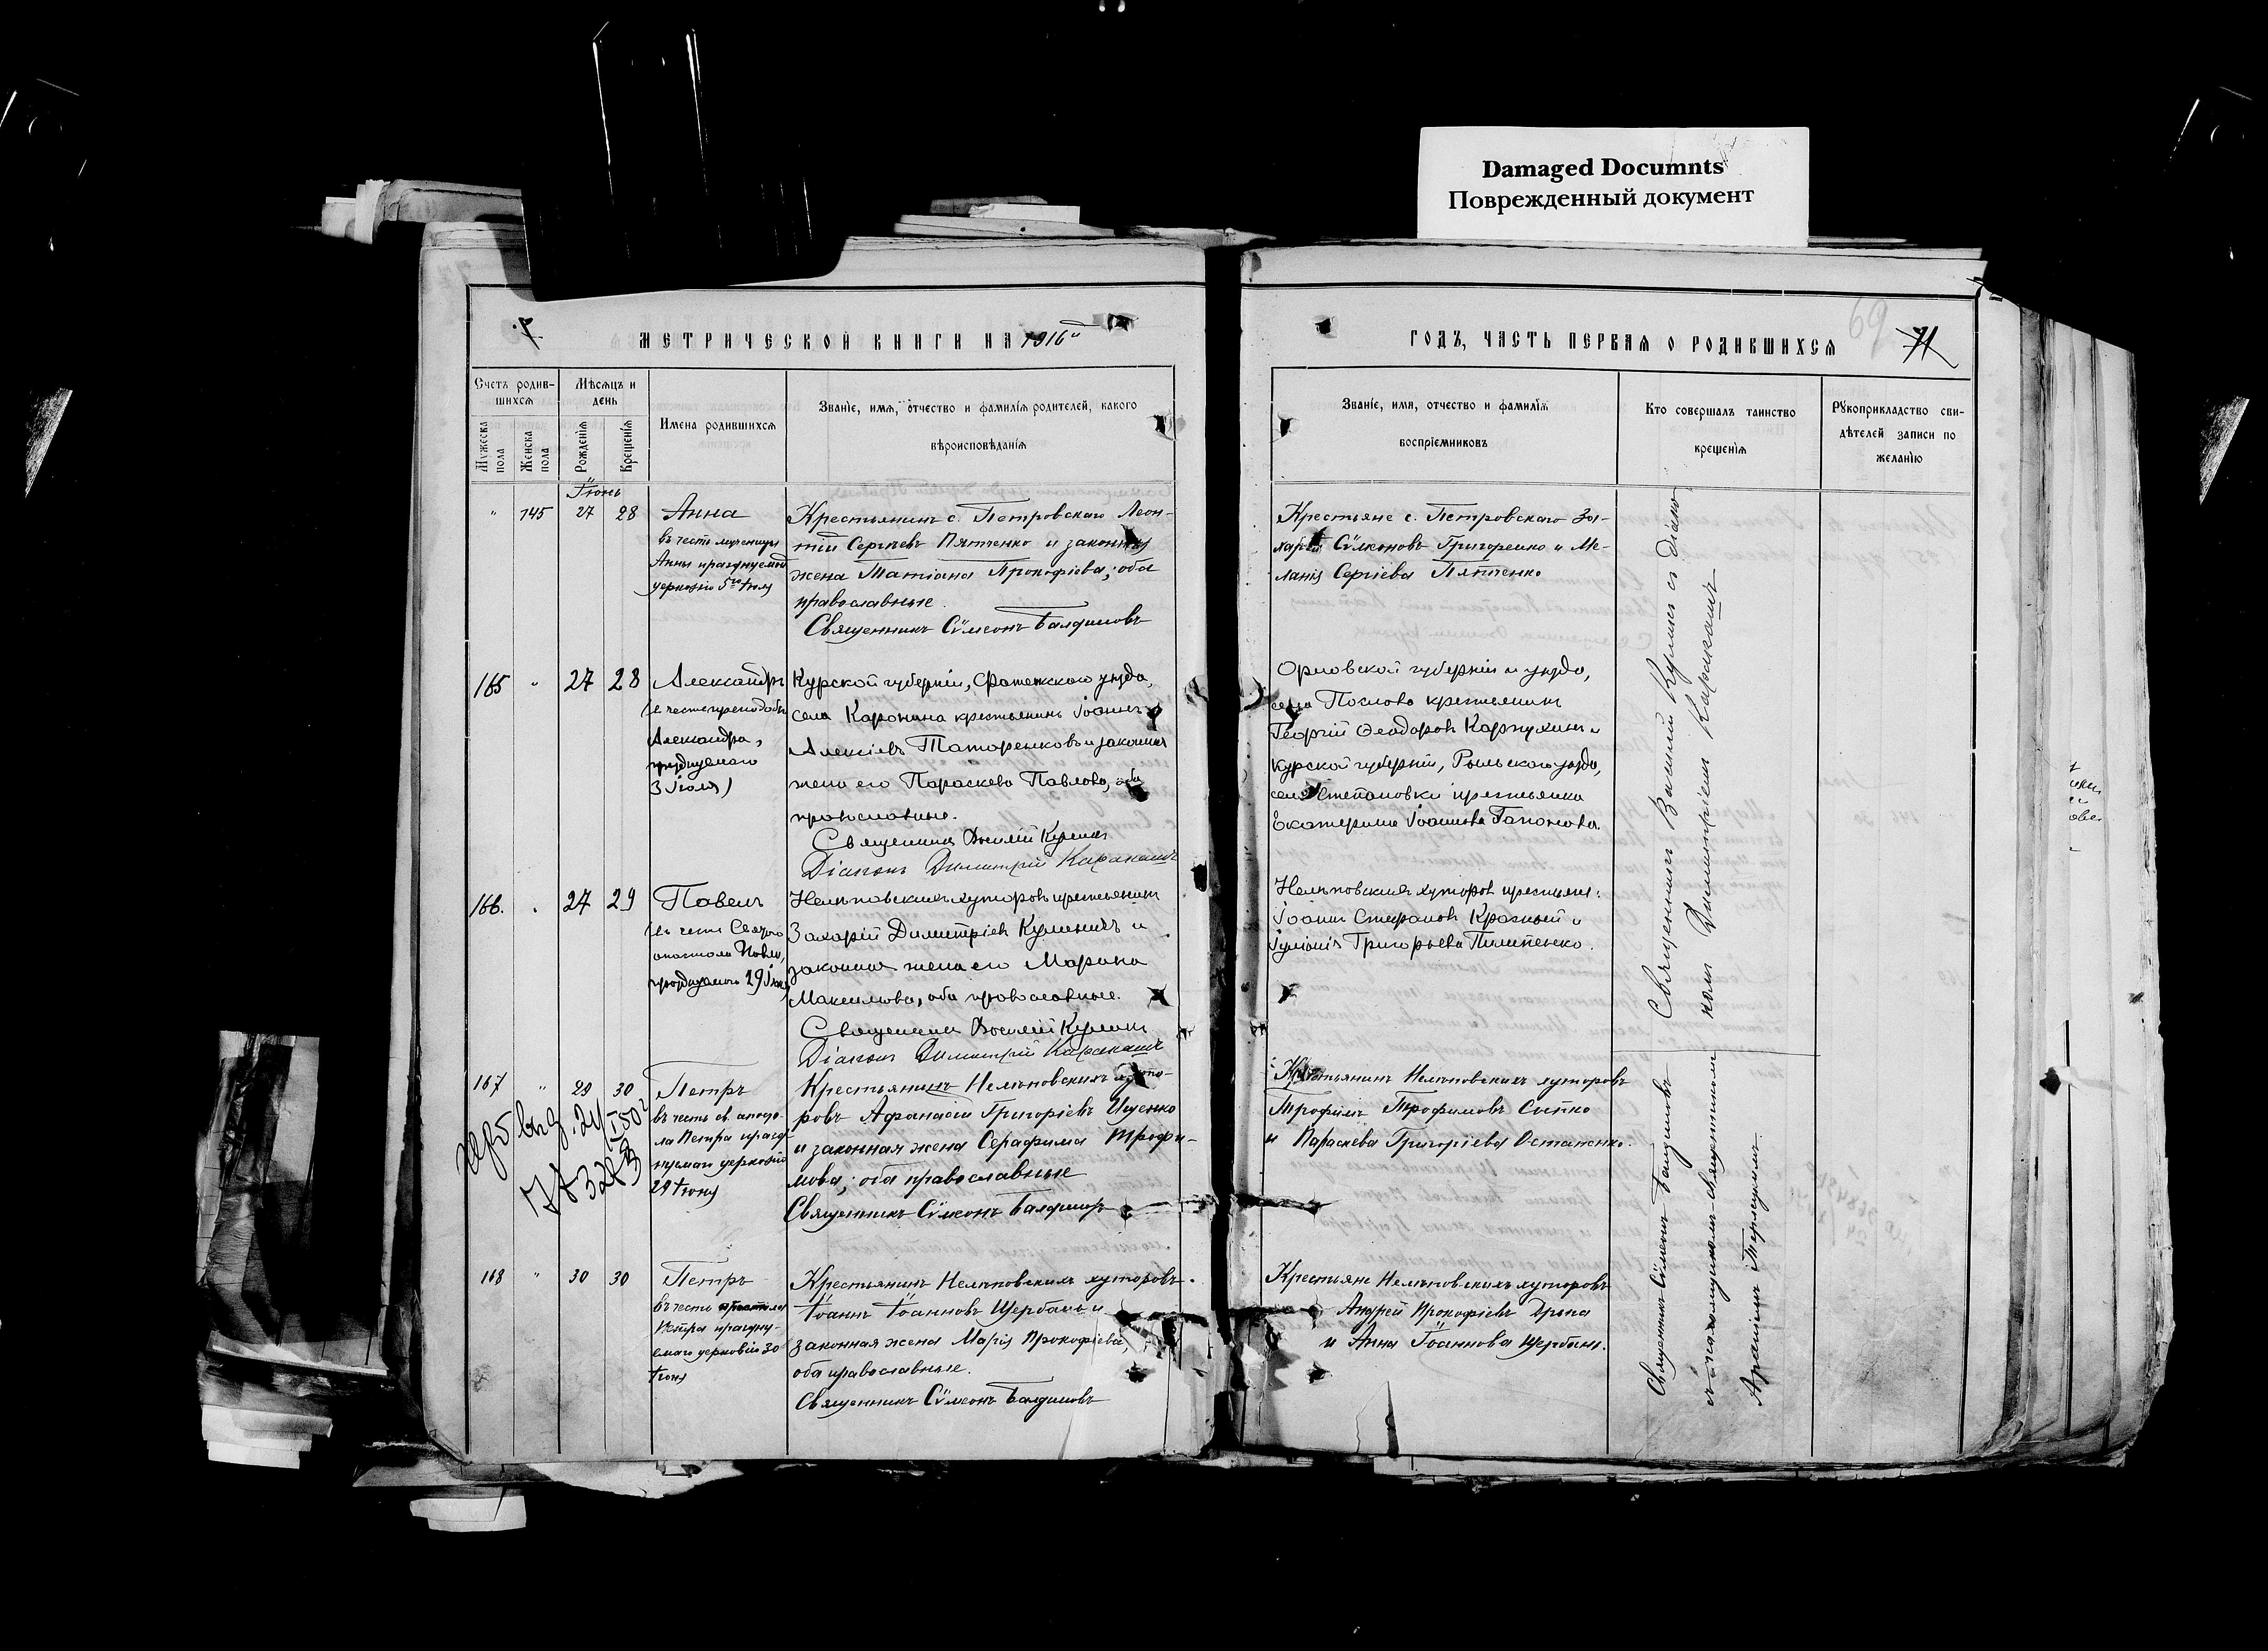 Damaged Documnts
Поврежденный документ
МЕТРИЧЕСКОЙ КНИГИ НА 1916й
ГОДЪ, ЧАСТЬ ПЕРВАЯ О РОДИВШИХСЯ
69 71
Счетъ родив-
шихся
Мѣсяцъ и
день
Мужеска
пола
Женска
пола
Рожденія
Крещенія
Имена родившихся
Званіе, имя, отчество и фамилія родителей, какого
вѣроисповѣданія
Званіе, имя, отчество и фамилія
воспріемниковъ
Кто совершалъ таинство
крещенія
Рукоприкладство сви-
дѣтелей записи по
желанію
Іюнь
" 145 27 28
Анна
въ честь мученицы
Анны празднуемой
церковію 5го Іюля
Крестьянинъ с. Петровскаго Леон-
тій Сергіевъ Пятченко и законная
жена Татіана Прокофіева; оба
православные.
Священникъ Сѵмеонъ
Крестьяне с. Петровскаго За-
харій Сѵмеоновъ Григоренко и Ме-
ланія Сергіева Пятченко
165 " 27 28
Александръ
(въ честь преподобн.
Александра,
празднуемаго
3 іюля)
Курской губерніи, Фатежскаго уѣзда,
села Каронина крестьянинъ Іоаннъ
Алексіевъ Татаренковъ и законная
жена его Параскева Павлова, оба
православные.
Священникъ Василій
Діаконъ Димитрій Каракашъ
Орловской губерніи и уѣзда,
села крестьянинъ
Георгій Ѳеодоровъ Карпухинъ и
Курской губерніи, Рыльскаго уѣзда,
села Степановки крестьянка
Екатерина Іоаннова Гапонова.
166. " 27 29
Павелъ
(въ честь Святого
апостола Павла,
празднуемаго 29 Іюня)
Нелѣповскихъ хуторовъ крестьянинъ
Захарій Димитріевъ и
законная жена его Марина
Максимова, оба православные.
Священникъ Василій
Діаконъ Димитрій Каракашъ
Нелѣповскихъ хуторовъ крестьяне:
Іоаннъ Стефановъ Красный и
Іуліанія Григорьева Пилипенко.
167 " 29 30
Петръ
въ честь св. апосто-
ла Петра празд-
нуемаго церковію
29 Іюня
Крестьянинъ Нелѣповскихъ хуто-
ровъ Афанасій Григоріевъ Ищенко
и законная жена Серафима Трофи-
мова; оба православные
Священникъ Сѵмеонъ
Крестьянинъ Нелѣповскихъ хуторовъ
Трофимъ Трофимовъ Сытко
и Параскева Григоріева Остапенко.
168 " 30 30
Петръ
въ честь апостола
Петра праздну-
емаго церковію 30
Іюня
Крестьянинъ Нелѣповскихъ хуторовъ
Іоаннъ Іоанновъ Щербань и
законная жена Марія Прокофіева,
оба православные.
Священникъ Сѵмеонъ
Крестьяне Нелѣповскихъ хуторовъ
Андрей Прокофіевъ
и Анна Іоаннова Щербань.
Священникъ Василій съ діако-
номъ Димитріемъ Каракашъ
Священникъ Сѵмеонъ
съ псаломщикомъ-священникомъ